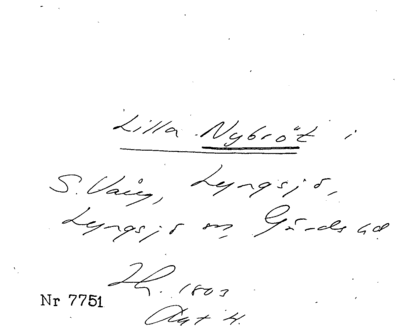 Lilla Nybröt i
S. Vång, Lyngsjö,
Lyngsjö sn, Gärds hd
Jh. 1803
Nr 7751
Akt 4.